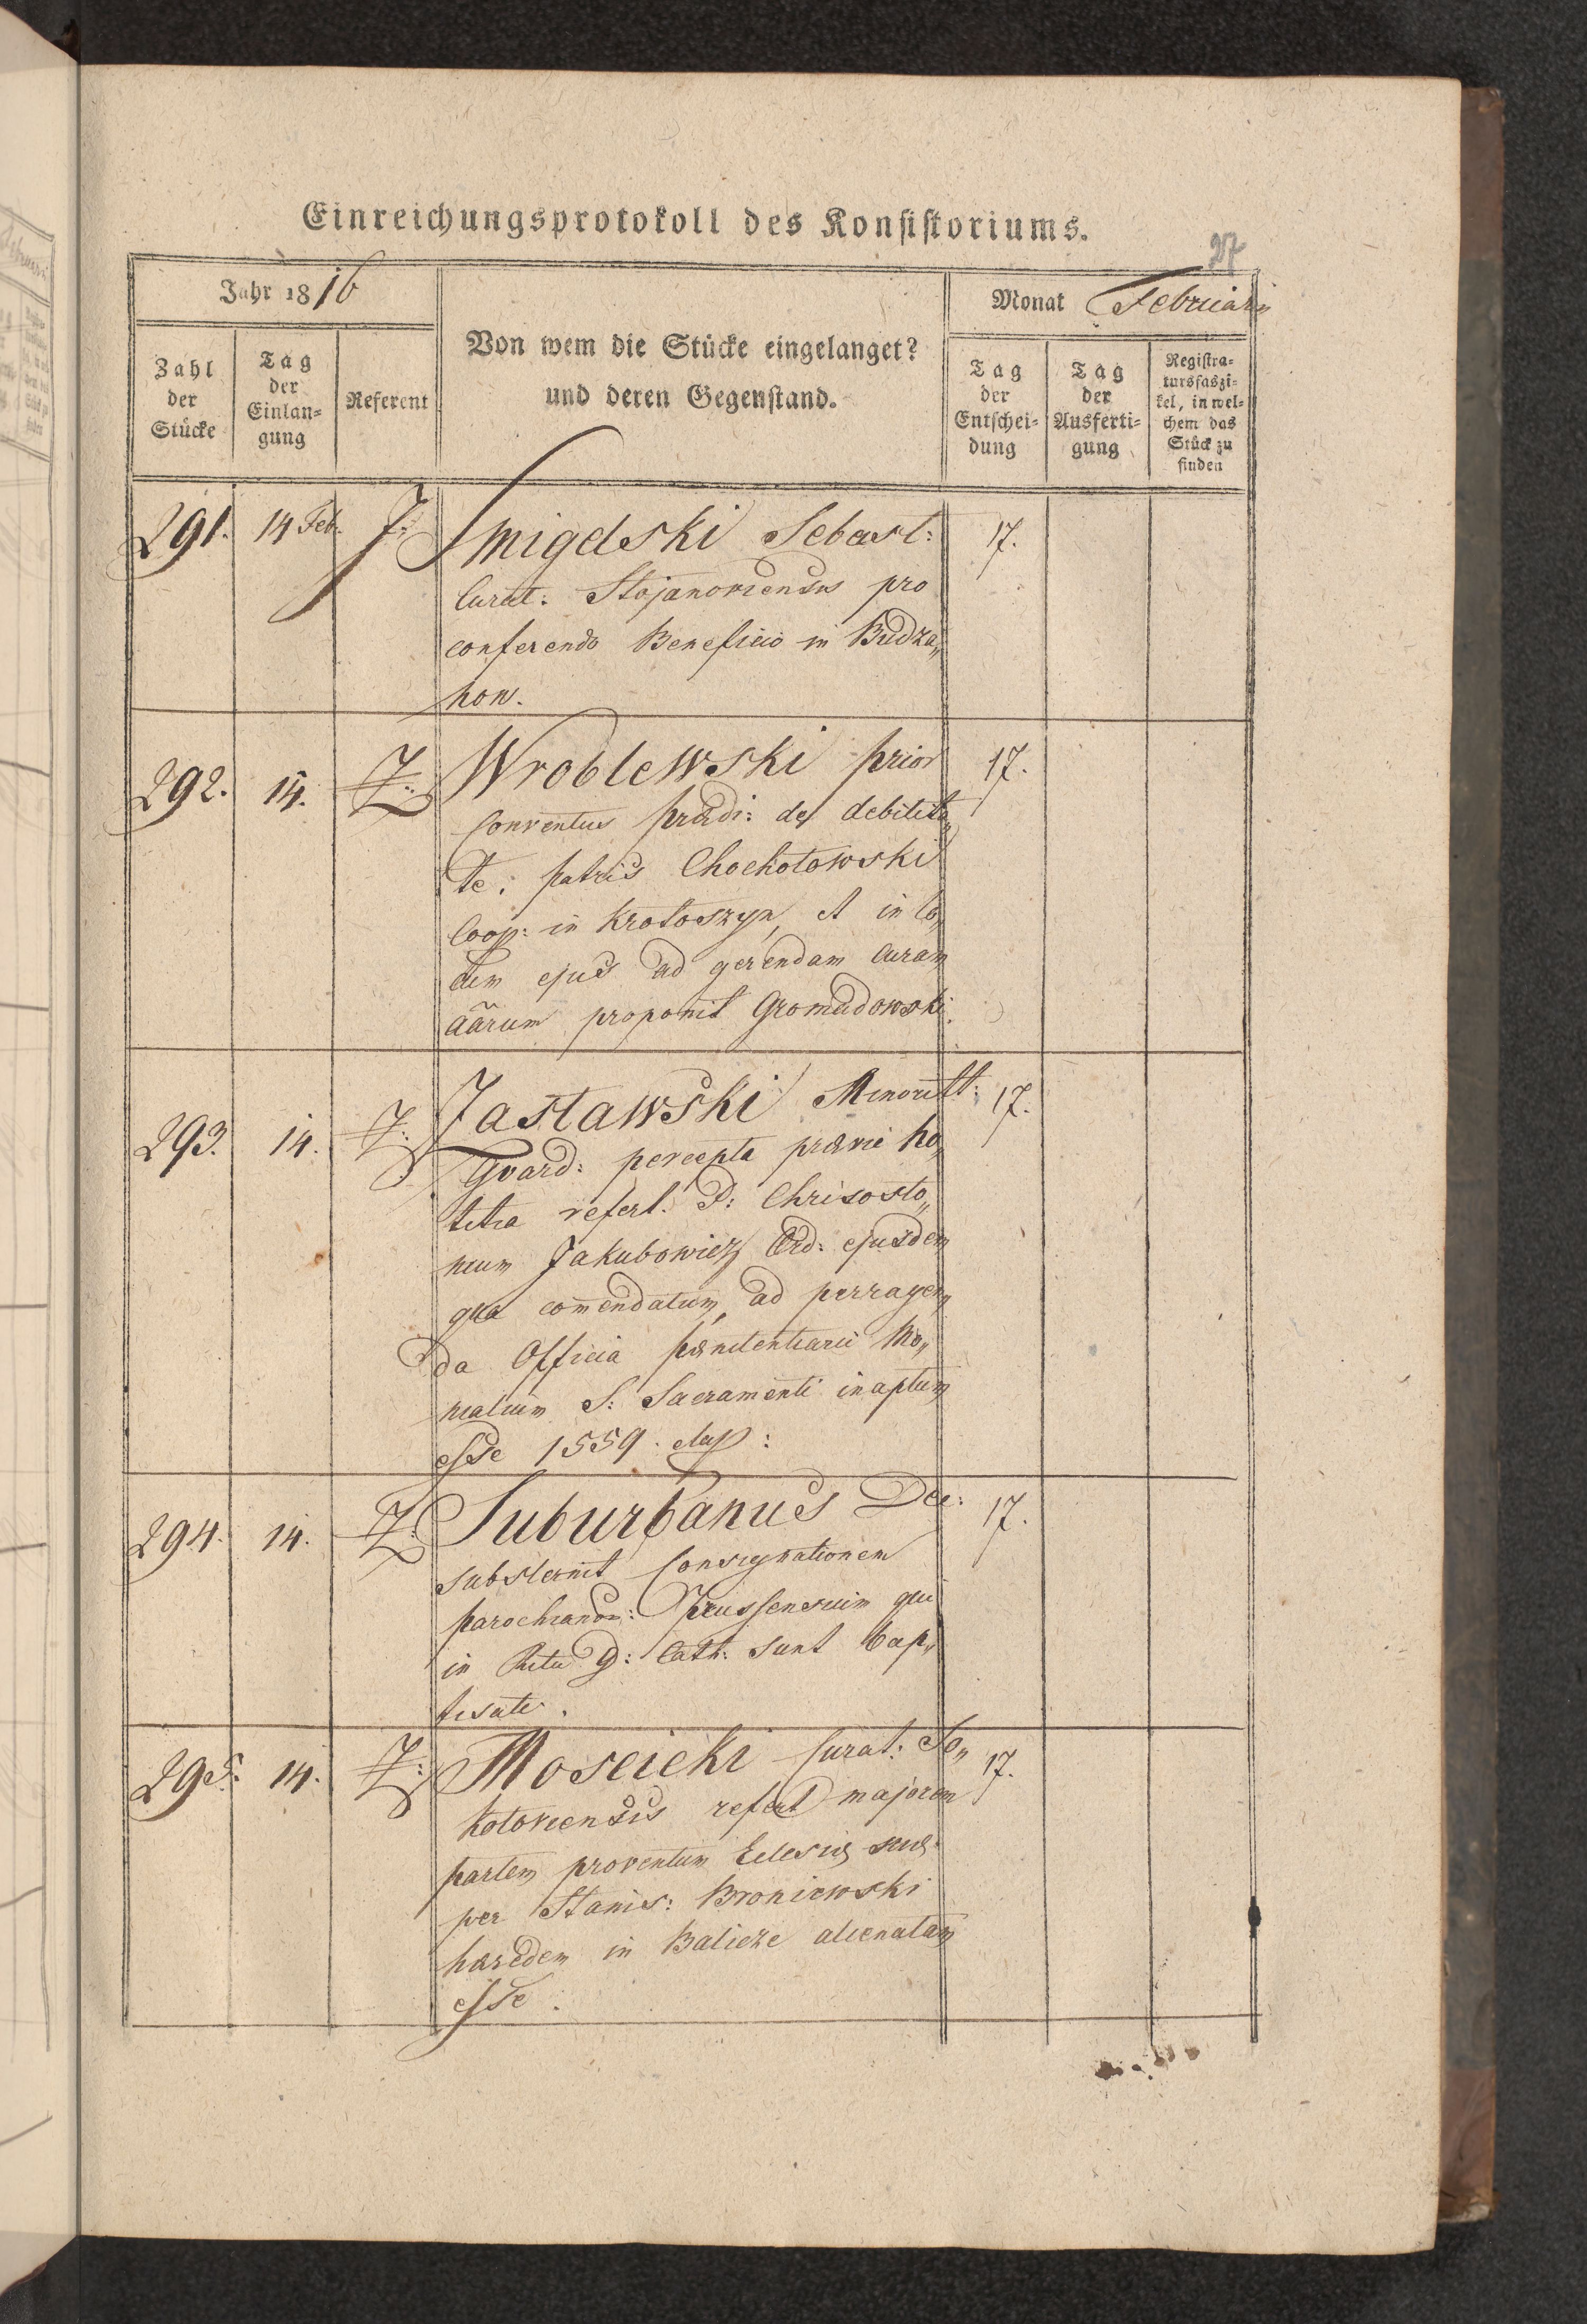 Einreichungsprotokoll des Konsistoriums.
27
Jahr 1816
Monat Februari
Zahl der Stücke
Tag der Einlan-gung
Referent
Von wem die Stücke eingelanget?
und deren Gegenstand.
Tag der Entschei-dung
Tag der Ausferti-gung
Registra-tursfaszi-kel, in wel-chem das Stück zu finden
291. 14 Feb. Smigelski Sebast: 17.
Curat: Stojanoviensis pro
conferendo Beneficio in Budza„
now.
292. 14. Z: Wroblewski prior 17.
Conventus Prædi: de debilita„
te: patris Chochotowski
Coop: in Krotoszyn, et in lo„
cum ejus ad gerendam curam
aãrum proponit Gromadowski.
293. 14. Z: Zastawski Minorit: 17.
Gvard: percepta prævie no„
titia refert. P: Chrisosto„
mum Jakubowicz Ord: ejusdem
qua comendatum, ad perragen„
da Officia pænitentiarii Mo„
nialium S: Sacramenti inaptum
esse 1559. elap:
294. 14. Z: Suburbanus Dec: 17.
substernit Consignationem
parochianor: Prussensium qui
in Ritu G: Cath: sunt bap„
tisati.
295. 14. Z: Moscicki Curat: So„ 17.
kotoviensis refert majorem
partem proventum Eclesiæ suæ
per Stanis: Broniewski
hæredem in Balicze alienatam
esse.